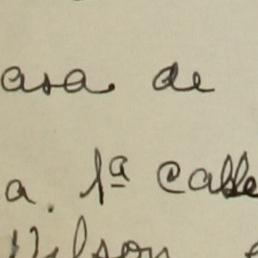 asa de
a. 1ª Calle
Wilson